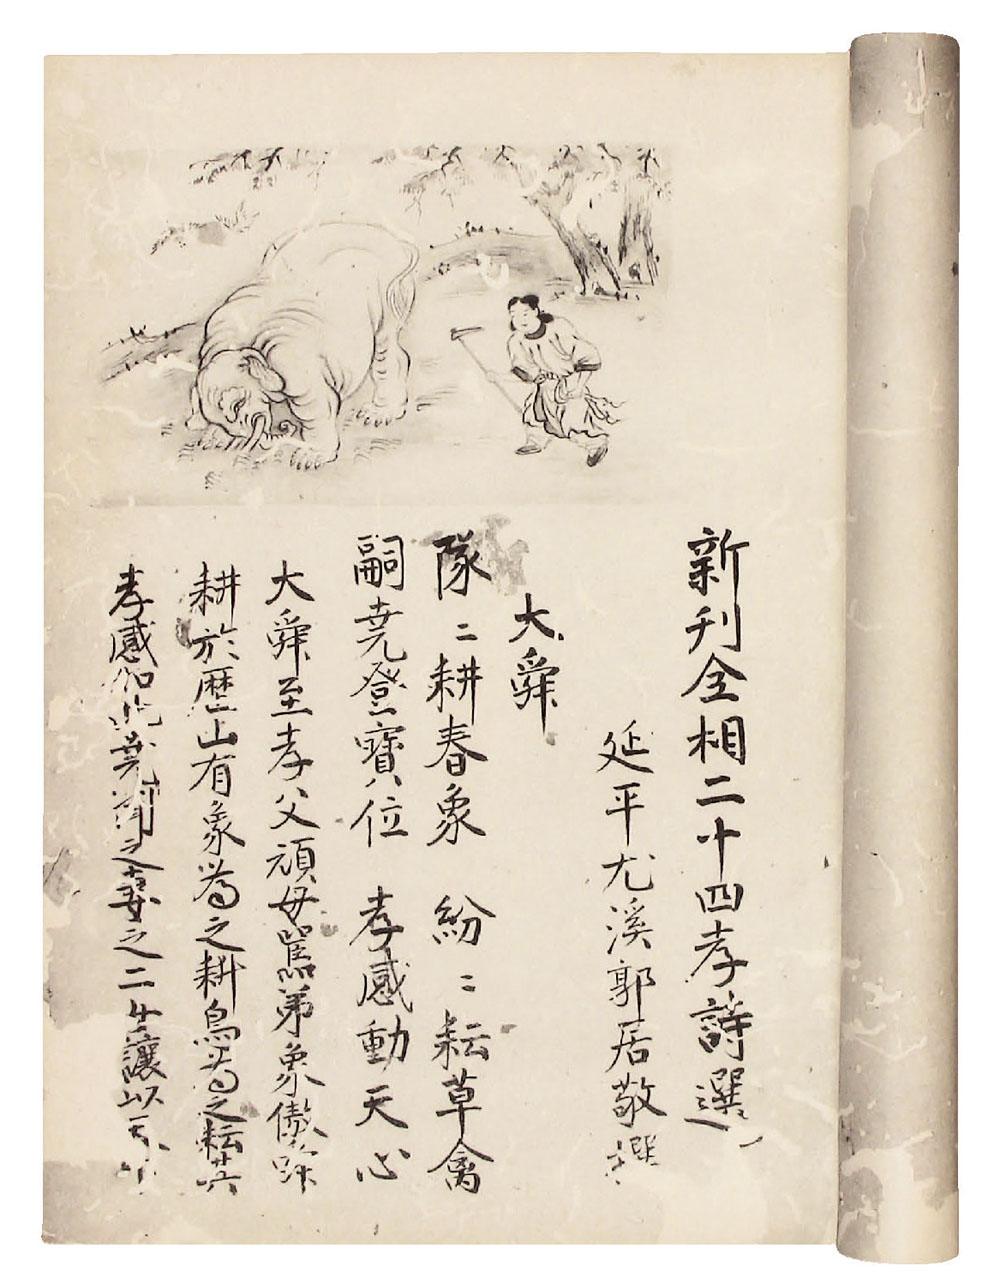 新刊全相二十四孝詩選
延平尤溪郭居敬撰
大舜
隊〻耕春象　紛〻耘草禽
嗣尭登寶位　孝感動天心
大舜至孝父頑母嚚弟象傲
耕於歴山有象為之耕鳥為之耘其
孝感如此尭聞之妻之二女讓以天